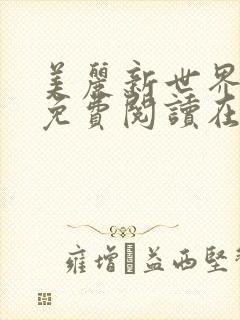 美麗新世界
免費閱讀在
雍增·益西堅